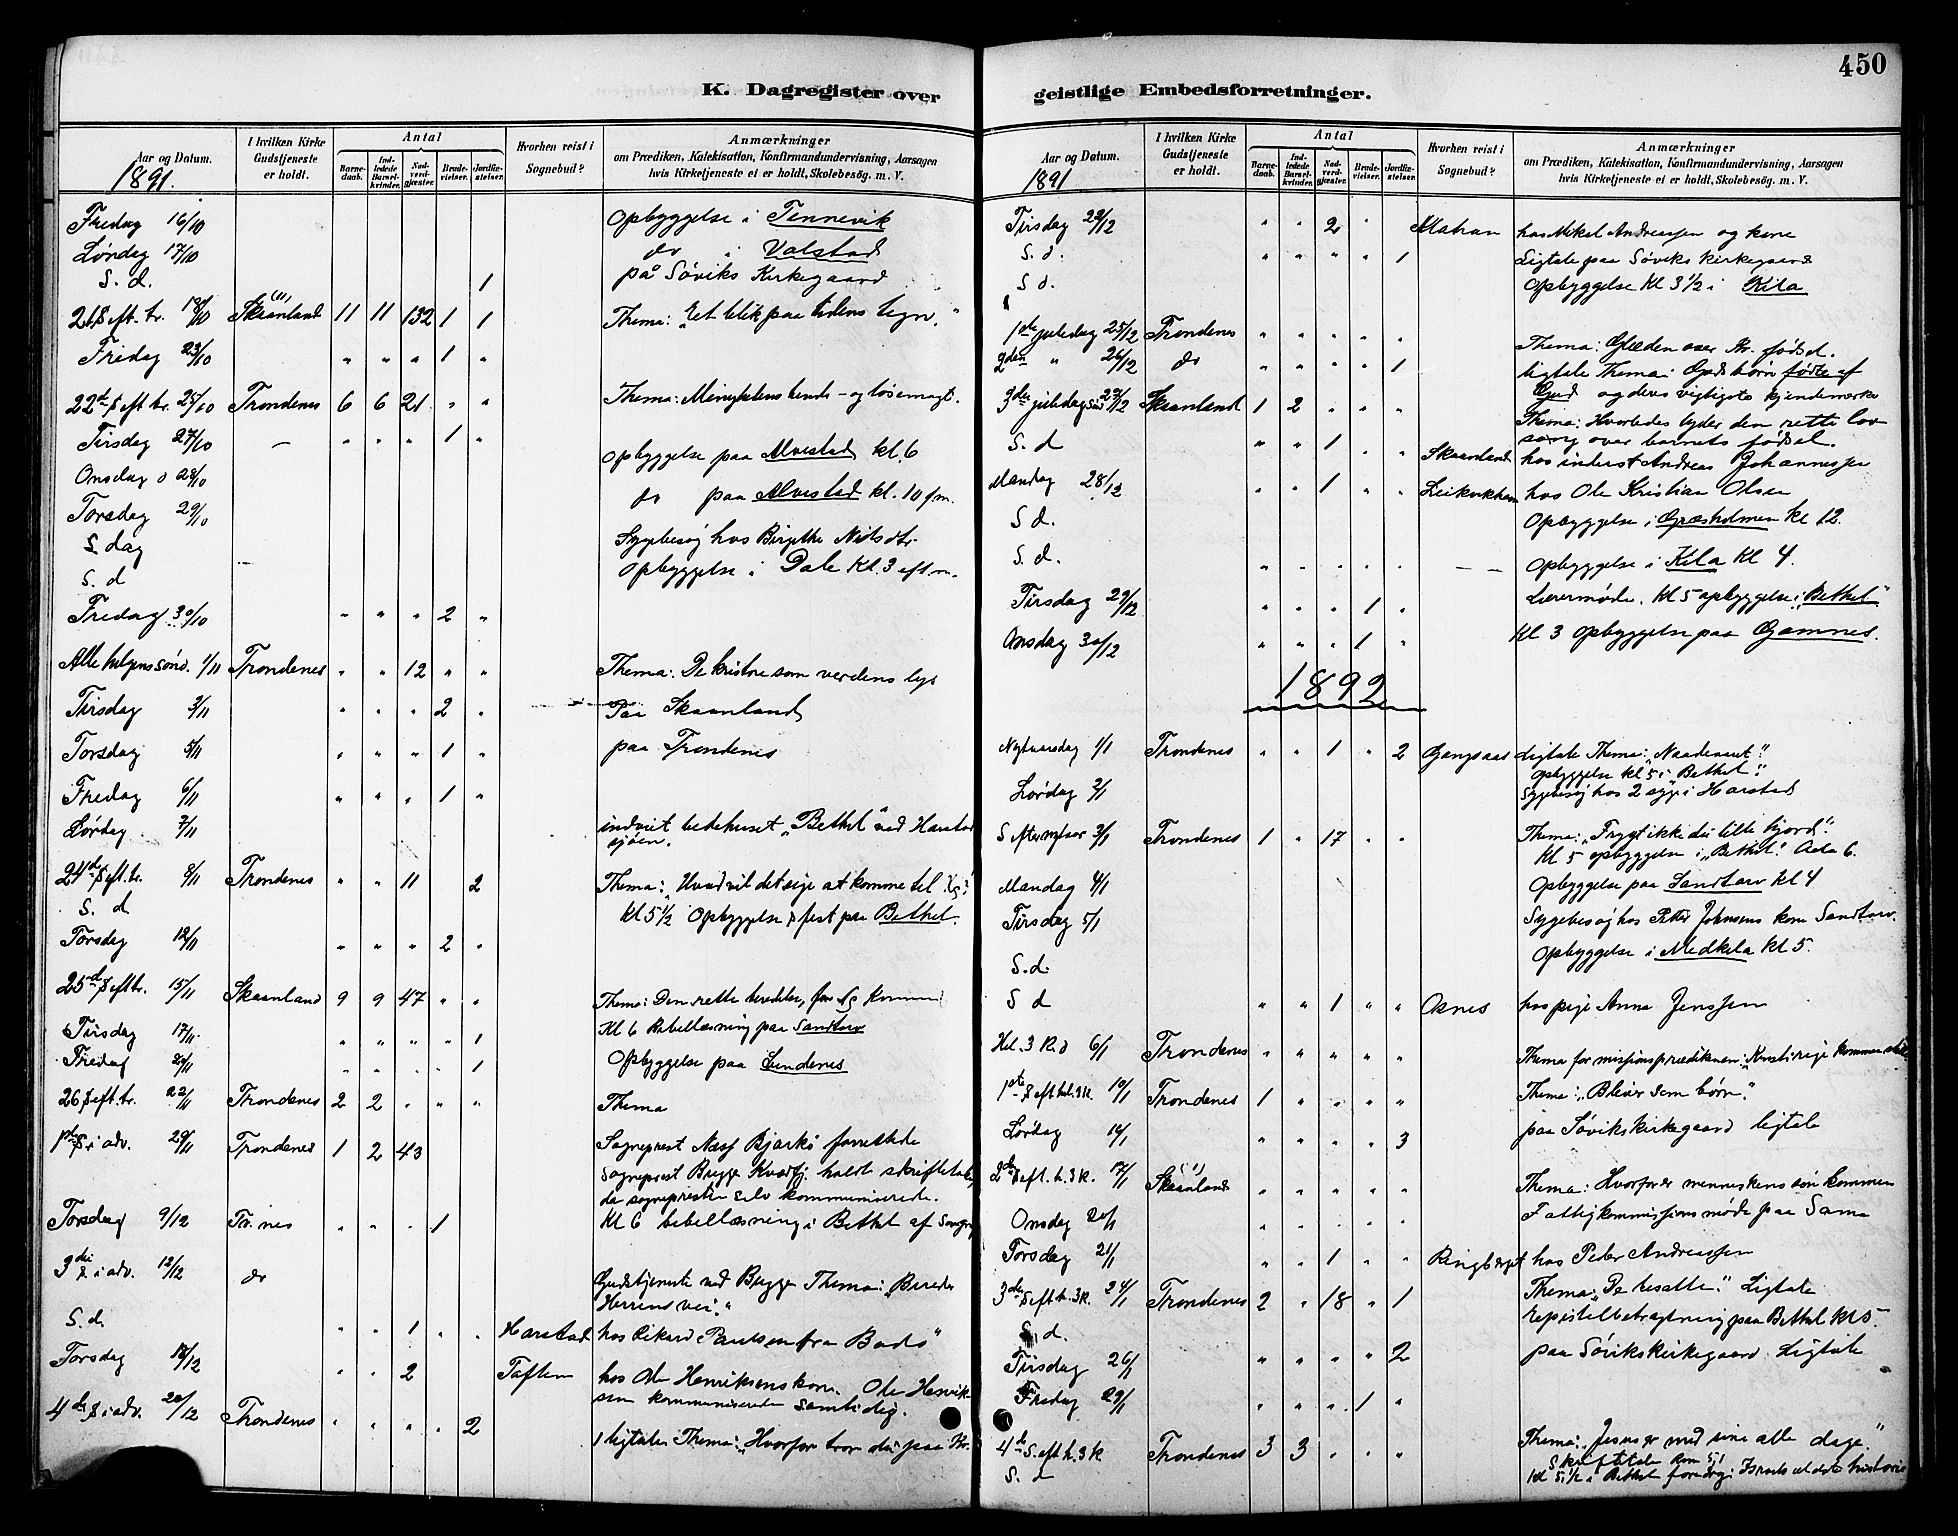 K. Dagregister over
Aar og Datum.
I hvilken Kirke Gudstjeneste er holdt.
Antal
Barnedaab.
Indledede Barselkvinder.
Nadverdgjester.
Brudevielser.
Jordfæstelser.
Hvorhen reist i Sognebud?
Anmærkninger
om Prædiken, Katekisation, Konfirmandundervisning, Aarsagen
hvis Kirketjeneste ei er holdt, Skolebesøg. m. V.
1891.
Fredag 16/10 Opbyggelse i Tennevik
Lørdag 17/10 do i Valstad
S. d. 1 på Søviks Kirkegaard
21 S eft. tr. 18/10 Skaanland 11 11 132 1 1 Thema: "Et blik paa tidens tegn."
Fredag 23/10 " " " 1 "
22de S eft tr. 25/10 Trondenes 6 6 21 " " Thema: Menighetens binde- og løsemagt.
Tirsdag 27/10 — " " " 1 "
Opbyggelse paa Alvestad kl. 6
Onsdag 28/10
do paa Alvestad kl. 10 fm.
Torsdag 29/10
S. dag Sygebesøg hos Birgitte Nilsdtr.
S. d Opbyggelse i Dale kl. 3 eft m.
Fredag 30/10 " " " 2 "
Alle helgens sønd. 1/11 Trondenes " " 12 " " Thema: De kristne som verdens lys
Tirsdag 3/11 " " " 2 " Paa Skaanland
Torsdag 5/11 " " " 1 " paa Trondenes
Fredag 6/11 " " " 1 "
Lørdag 7/11 indviet bedehuset "Bethel" ved Harstad
sjøen.
24de S eft. tr. 8/11 Trondenes " " 11 2 Thema: Hvad vil det sige at komme til
S. d kl 5 1/2 Opbyggelse fest paa Bethel.
Torsdag 12/11 " " " 2 "
25de S eft tr. 15/11 Skaanland 9 9 47 " " Thema: Den rette beredelse for
Kl 6 Bibellæsning paa Sandtorv
Tirsdag 17/11 " " " " 1
Fredag 20/11 " " " " 1 Opbyggelse paa Sundenes
26 S eft. tr. 22/11 Trondenes 2 2 " " " Thema
1ste S i adv. 29/11 Trondenes 1 2 43 Sogneprest Næss Bjarkø forrettede
Sogneprest Bugge Kvædfj. holdt skriftetale,
da sognepresten selv kommunicerede.
Torsdag 9/12 Tr.nes " " " 1 Kl 6 bibellæsning i Bethel af
3die S. i adv. 13/12 do Gudstjeneste ved Bugge Thema: "Bereder
Herrens vei."
S. d. " " 1 " " Harstad hos Rikard Paulsen fra Bodø
Torsdag 18/12 " " 2 hos Ole Henriksens kone. Ole
sen kommunicerede samtidig.
4de S i adv. 20/12 Trondenes " " " " 2 1 ligtale Thema: "Hvorfor tror du paa Kr.
geistlige Embedsforretninger.
450
Aar og Datum.
I hvilken Kirke Gudstjeneste er holdt.
Antal
Barnedaab.
Indledede Barselkvinder.
Nadverdgjester.
Brudevielser.
Jordfæstelser.
Hvorhen reist i Sognebud?
Anmærkninger
om Prædiken, Katekisation, Konfirmandundervisning, Aarsagen
hvis Kirketjeneste ei er holdt, Skolebesøg. m. V.
1891
Tirsdag 22/12 " " 2 " hos Mikal Andreassen og kone
S. d. " " " " 1 Ligtale paa Søviks kirkegaard
S d. Opbyggelse kl 3 1/2 i Kila
1ste juledag 25/12 Trondenes " " " " " Thema: Glæden over Kr. fødsel.
2den " 26/12 do " " " " 1 ligtale Thema: Guds børn fødte af
Gud og deres vigtigste kjendemærke
3die juledag 27/12 Skaanland 1 2 " " " Thema: Hvorledes lyder den rette lov
sang over barnets fødsel.
S. d " " 1 " " Skaanland hos inderst Andreas Johannessen
Mandag 28/12 " " 1 " " hos Ole Kristian Olsen
S d. Opbyggelse i Græsholmen kl 12.
S. d. " " " " " — — Opbyggelse i Kila kl 4.
Tirsdag 29/12 " " " 1 " Lærermøde. kl 5 opbyggelse i "Bethel"
Onsdag 30/12 " " " 1 " Kl 3 Opbyggelse paa Gamnes.
1892
Nytaarsdag 1/1 Trondenes " " 1 " 2 Gangsaas Ligtale Thema: "Naadeaaret".
Opbyggelse kl 5 i "Bethel".
Lørdag 2/1 Sygebesøg hos 2 syge i Harstad
S efter nytaar 3/1 Trondenes 1 " 17 " " Thema: "Frygt ikke du lille hjord".
kl 5 opbyggelse i "Bethel".
Mandag 4/1 Opbyggelse paa Sandtorv kl 4
Tirsdag 5/1 Sygebesøg hos Peter Johnsens kone Sandtorv.
S. d. Opbyggelse i Medkila kl 5.
S d " " 1 " " Osnes hos pige Anna Jenssen
Hel. 3 K. d 6/1 Trondenes " " " " " Thema for missionsprædikenen:
1ste S eft hel. 3 K. 10/1 Trondenes 1 " " " " Thema: "Bliver som børn".
Lørdag 16/1 " " " " 3 paa Søvikskirkegaard ligtale
2den S eft. h. 3 K. 17/1 Skaanland " " " " " Thema: Hvorfor er menneskens søn kommen
Onsdag 20/1 " " " " " Fattigkommissionsmøde paa Sama
Torsdag 21/1 " " 1 " " Ringberget hos Peder Andreassen
3die S eft h. 3 K. 24/1 Trondenes 2 " 18 " 1 Thema: "De besatte". Ligtale
S. d. epistelbetragtning paa Bethel kl 5.
Tirsdag 26/1 " " " " 2 paa Søvikskirkegaard Ligtale
Fredag 29/1 " " " 1 "
4de S. eft h. 3 K Trondenes 3 3 " " " Thema: "Jesus er med sine alle dage."
S. d Skriftetale
kl 5 1/2 i Bethel foredrag: Israels ældste historie